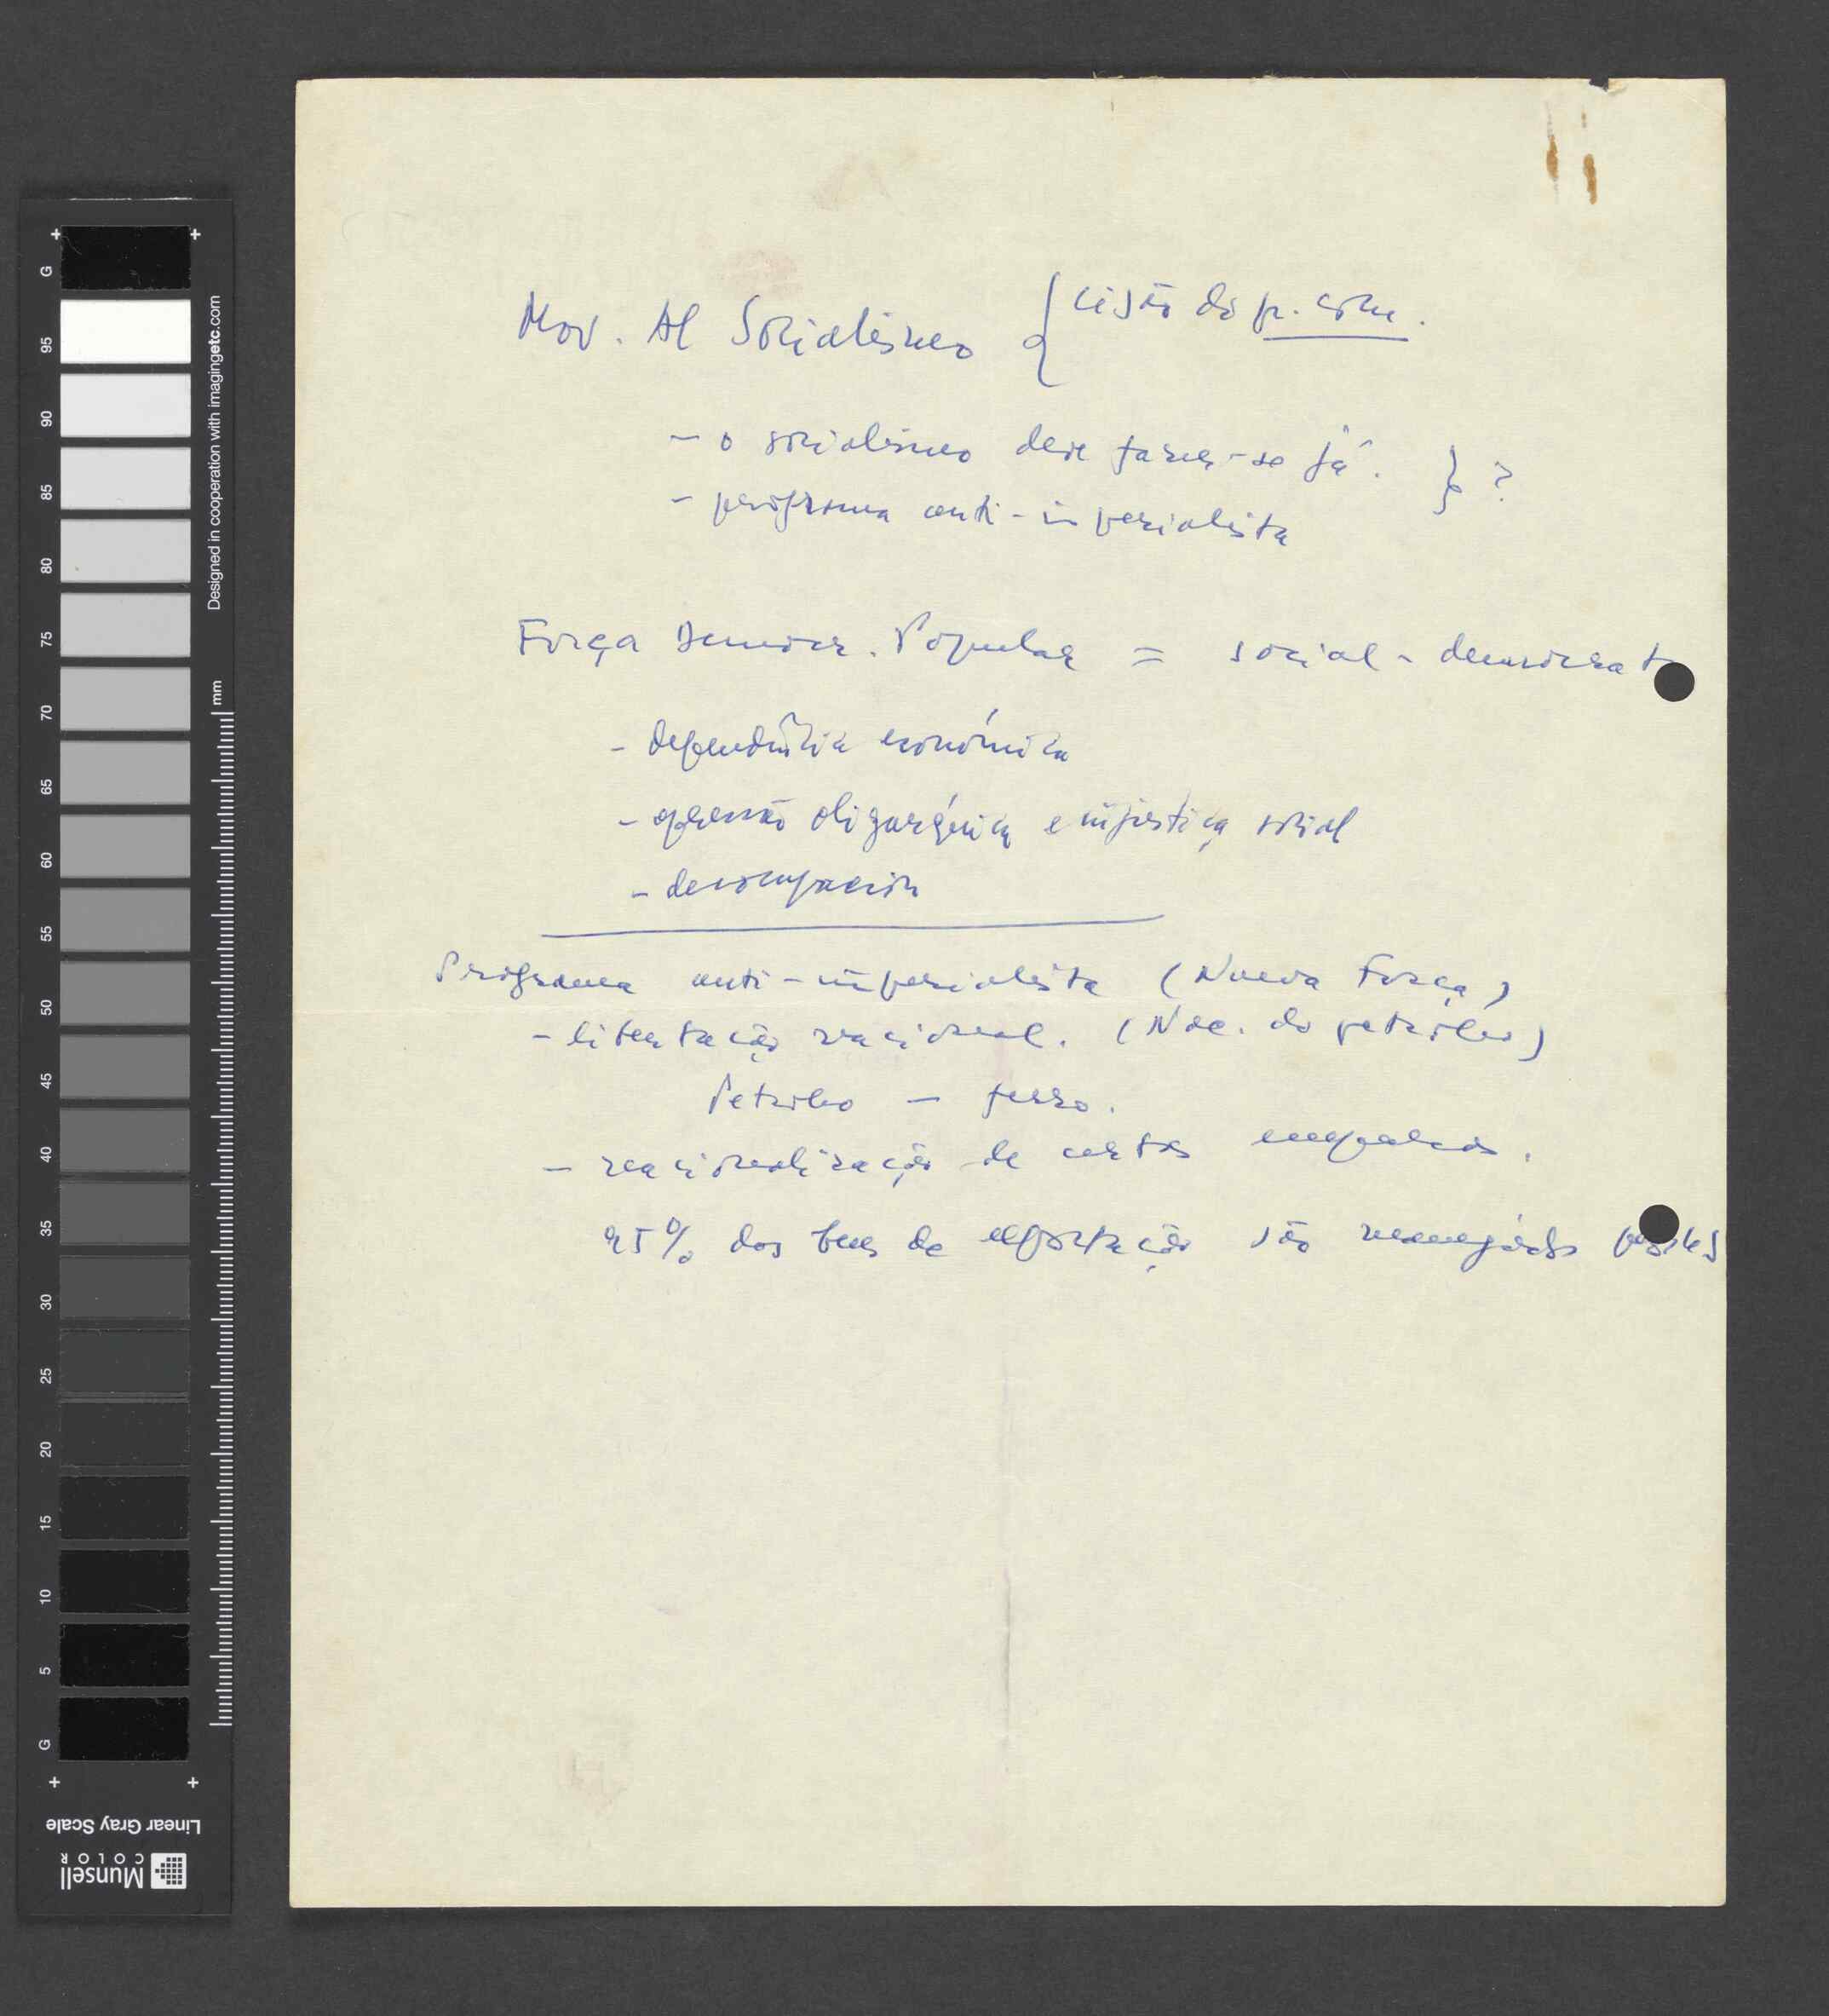 Mov. Al Socialismo { cisão do p. com.
- o socialismo deve fazer-se já. } ?
- programa anti-imperialista
Força Democr. Popular = social-democrat
- dependência económica
- opressão oligárquica e injustiça social
- desocupación
Programa anti-imperialista (Nueva Força)
- libertação nacional. (Nac. do petróleo)
Petróleo - ferro.
- nacionalização de certas empresas.
95% dos bens de exportação são
G
95
90
85
80
75
70
65
60
55
50
45
40
35
30
25
20
15
10
5
G
Designed in cooperation with imagingetc.com
mm
Linear Gray Scale
Munsell
COLOR